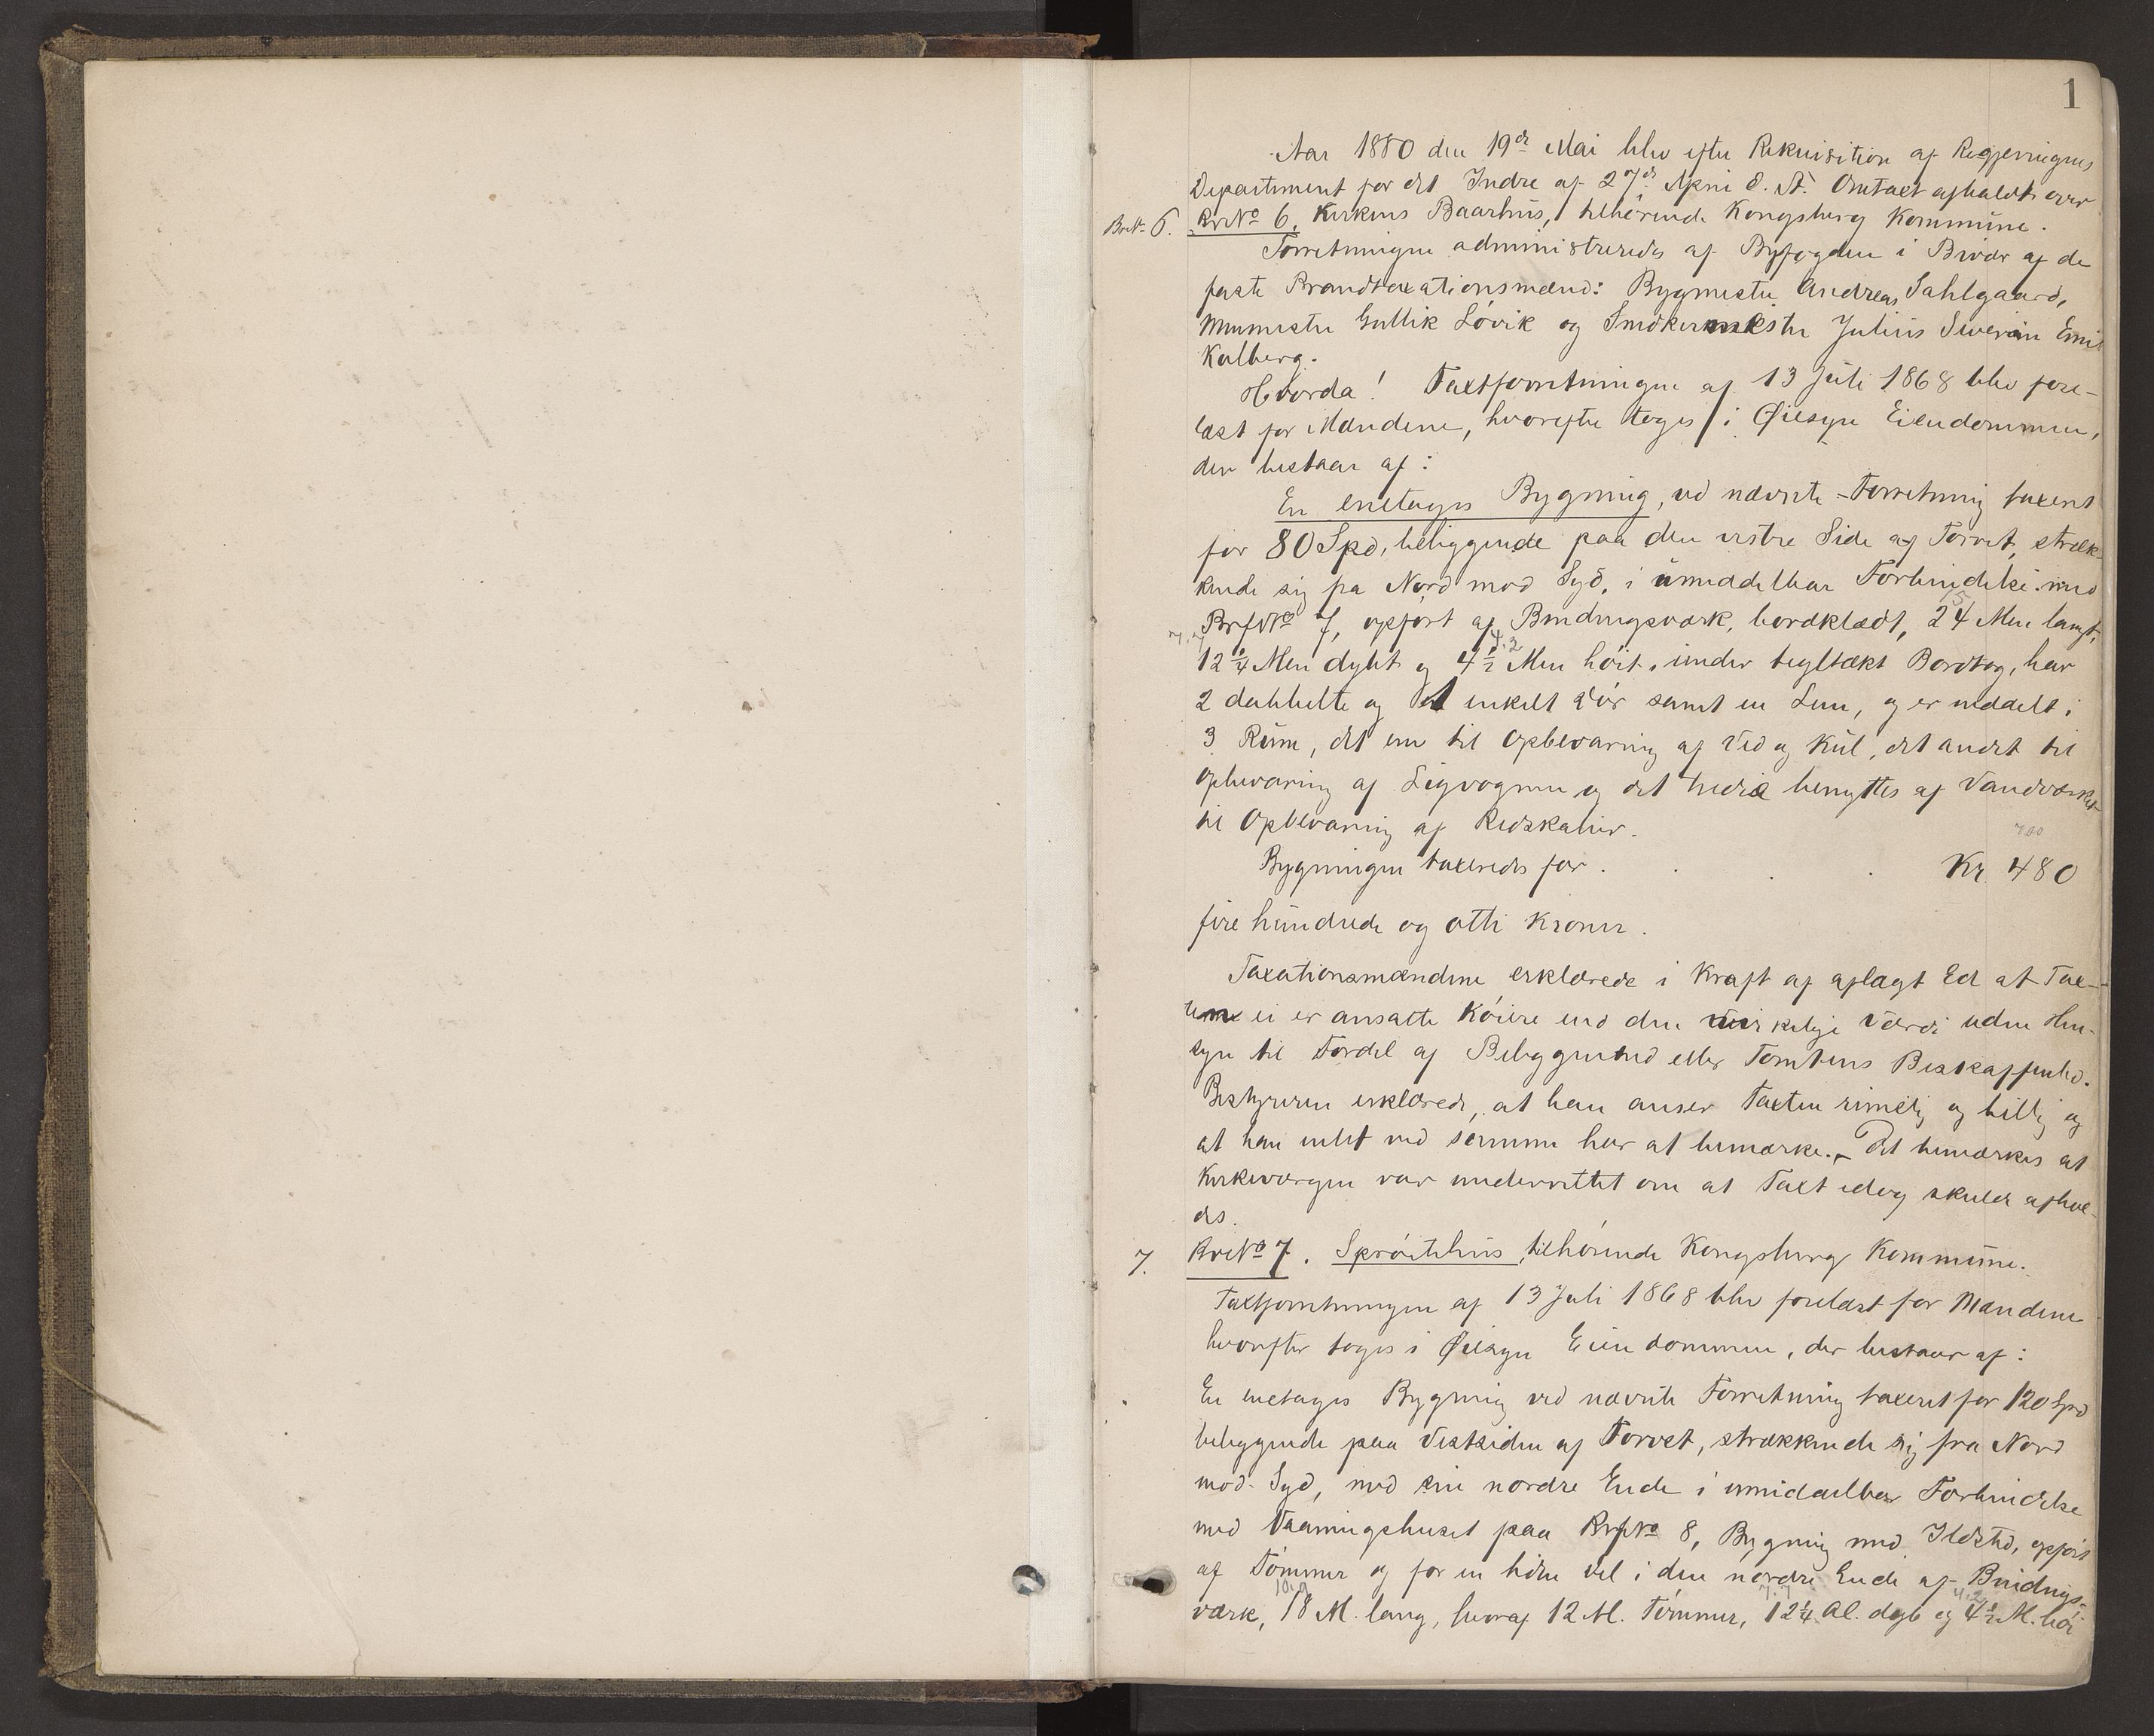 1
Aar 1880 den 19de Mai blev efter Rekvisition af Regjeringens
Departement for det Indre af 27de April d. A. Omtaxt afholdt over
BrNo 6. BrNo 6, Kirkens Baarhus, tilhørende Kongsberg Kommune.
Forretningen administreredes af Byfogden i Bivær af de
faste Brandtaxationsmænd: Bygmester Andreas Sahlgaard,
Murmester Gullik Løvik og Snidkermester Julius Severin Emil
Kalberg.
Hvorda! Taxtforretningen af 13 Juli 1868 blev fore-
læst for Mændene, hvorefter toges i Øiesyn Eiendommen,
der bestaar af:
En enetages Bygning, ved nævnte Forretning taxeret
for 80 Spd, beliggende paa den vestre Side af Torvet, stræk-
kende sig fra Nord mod Syd, i umiddelbar Forbindelse med
15
BrfNo 7, opført af Bindingsværk, bordklædt, 24 Alen langt,
7,7 4.2
12 1/4 Alen dybt og 4 1/2 Alen høit, under tegltækt Bordtag, har
2 dobbelte og et enkelt Dør samt en Lem, og er inddelt i
3 Rum, det ene til Opbevaring af Ved og Kul, det andet til
Opbevaring af Ligvognen og det tredie benyttes af Vandværket
til Opbevaring af Redskaber.
700
Bygningen taxeredes for . . . . Kr. 480
fire hundrede og otti Kroner.
Taxationsmændene erklærede i Kraft af aflagt Ed at Tax-
terne ei er ansatte høiere end den virkelige Værdi uden Hen-
syn til Fordel af Beliggenhed eller Tomtens Beskaffenhed.
Bestyreren erklærede, at han anser Taxten rimelig og billig og
at han intet ved samme har at bemærke. – Det bemærkes at
Kirkeværgen var underrettet om at Taxt idag skulde afhol-
des.
7. BrNo 7. Sprøitehus, tilhørende Kongsberg Kommune.
Taxtforretningen af 13 Juli 1868 blev forelæst for Mændene
hvorefter toges i Øiesyn Eiendommen, der bestaar af:
En enetages Bygning ved nævnte Forretning taxeret for 120 Spd
beliggende paa Vestsiden af Torvet, strækkende sig fra Nord
mod Syd, med sin nordre Ende i umiddelbar Forbindelse
med Vaaningshuset paa BrfNo 8, Bygning med Ildsted, opført
af Tømmer og for en liden Del i den nordre Ende af Bindings-
7.7 4.2
værk, 18 Al. lang, hvoraf 12 Al. Tømmer, 12 1/4 Al. dyb og 4 1/2 Al. høi